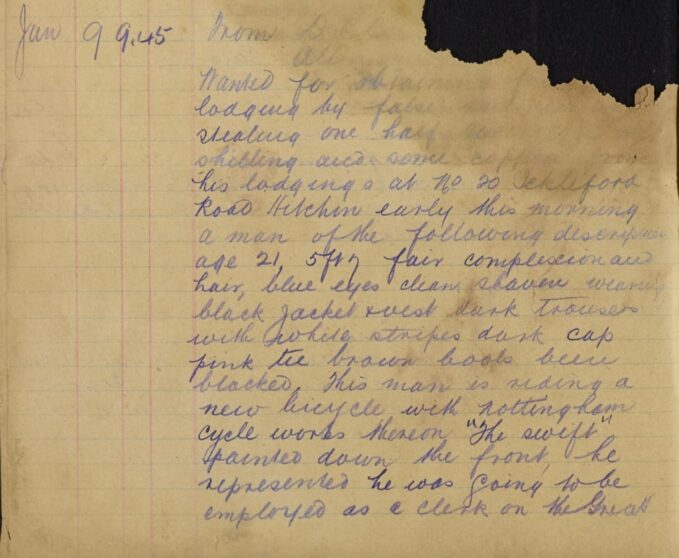 Jan 9 9.45 From
Wanted for
lodging by false
stealing one half
shilling and some from
his lodgings at No 20 Ickleford
Road Hitchin early this morning
a man of the following description
age 21, 5ft 7 fair complexion and
hair, blue eyes clean shaven wearing
black jacket & vest dark trousers
with white stripes dark cap
pink tie brown boots been
blacked. This man is riding a
new bicycle with Nottingham
cycle works thereon "The Swift"
painted down the front, he
represented he was going to be
employed as a clerk on the Great